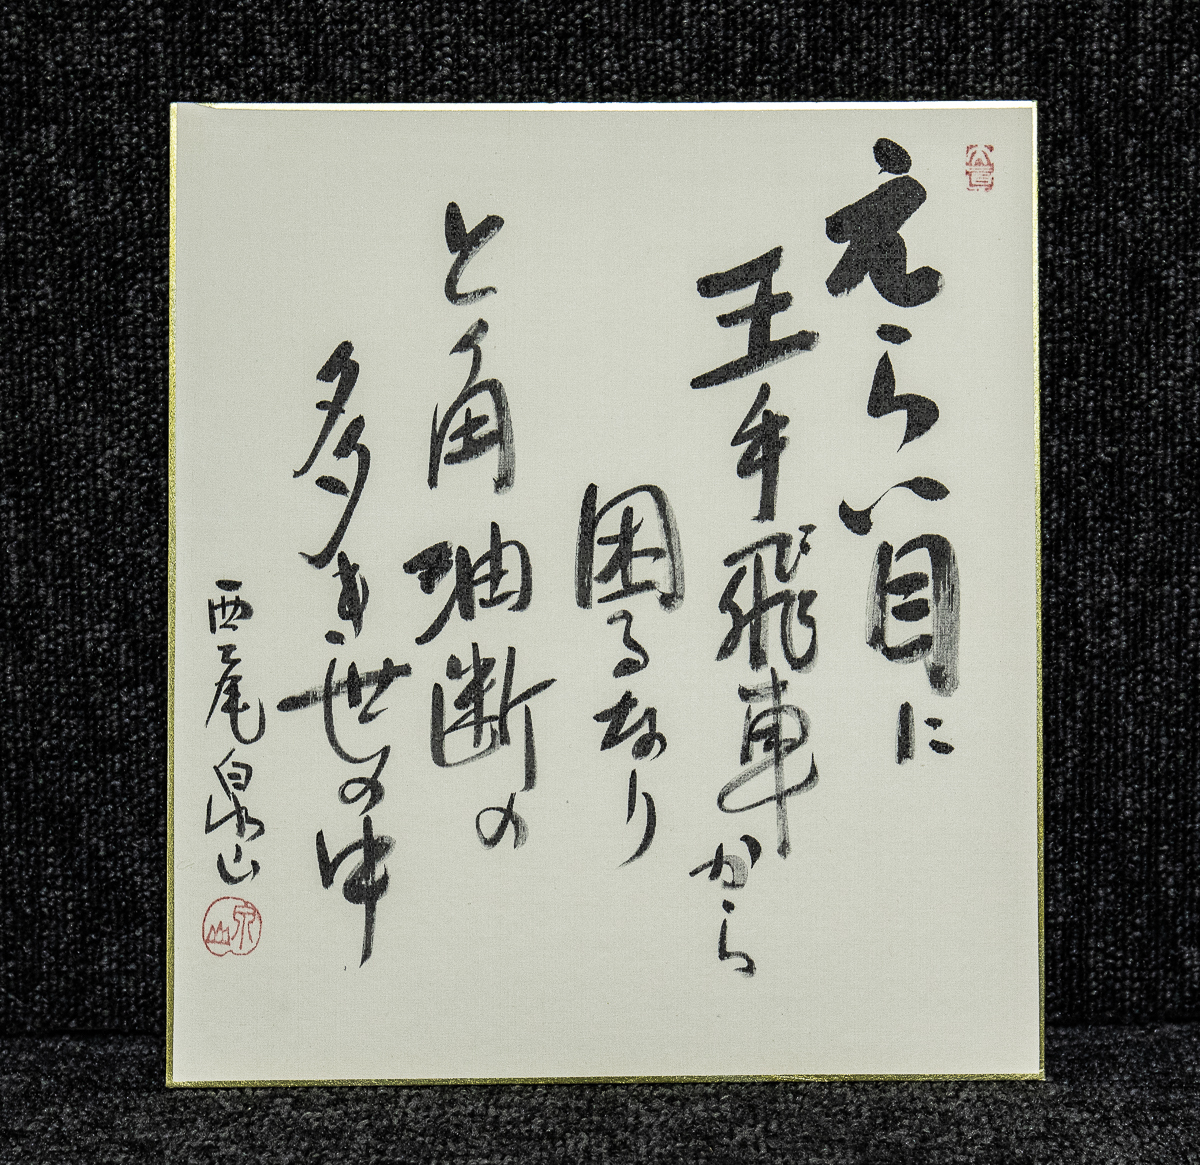 えらい目に
王手飛車から
困るなり
と角油断の
多き世の中
西尾泉山
泉山